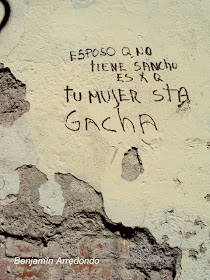 ESPOSO Q NO
TIENE SANCHO
ES X Q
TU MUJER STA
GACHA
Benjamín Arredondo